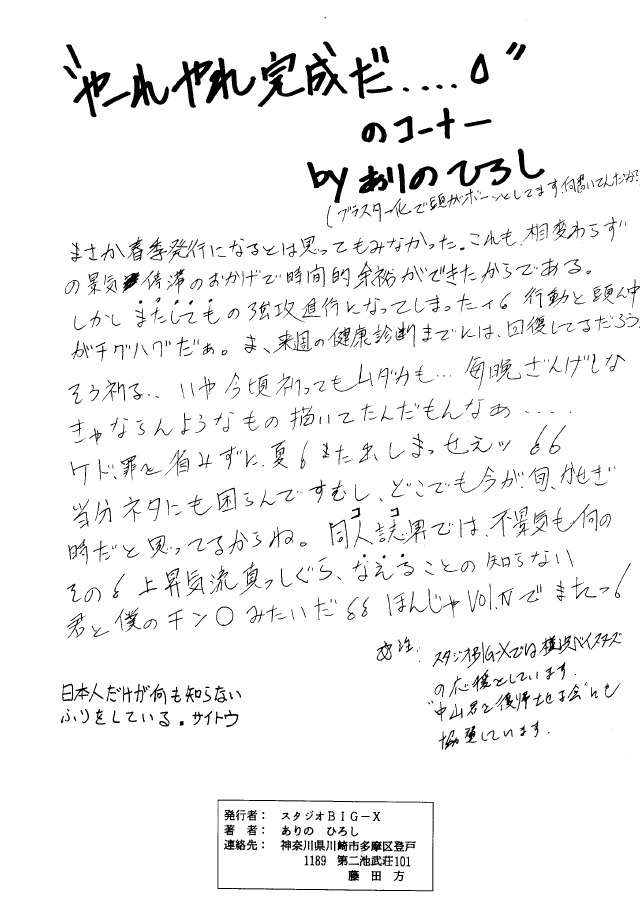 “やーれやれ完成だ....！”
のコーナー
by ありのひろし
(ブラスター化で頭がボーッとしてます、何書いてんだか?
まさか春季発行になるとは思ってもみなかった。これも、相変わらず
の景気停滞のおかげで時間的余裕ができたからである。
しかしまたしてもの強攻進行になってしまったィ! 行動と頭ん中
がチグハグだぁ。ま、来週の健康診断までには、回復してるだろう
そう祈る.. いや今頃祈ってもムダかも... 毎晩ざんげしな
きゃならんようなもの描いてたんだもんなぁ.....
ケド、罪を省みずに、夏!また出しまっせぇッ!!
当分ネタにも困らんですむし、どこでも今が旬、かせぎ
時だと思ってるからね。同人誌界では、不景気も何の
ココ
その!上昇気流真っしぐら、なえることの知らない
君と僕のチン○みたいだ!! ほんじゃVol.Ⅳでまたっ!
スタジオBIG-Xでは横浜ベイスターズ
の応援をしています.
“中山君を復帰させる会”にも
協賛しています.
日本人だけが何も知らない
ふりをしている。サイトウ
発行者: スタジオBIG-X
著 者: ありの ひろし
連絡先: 神奈川県川崎市多摩区登戸
1189 第二池武荘101
藤 田 方